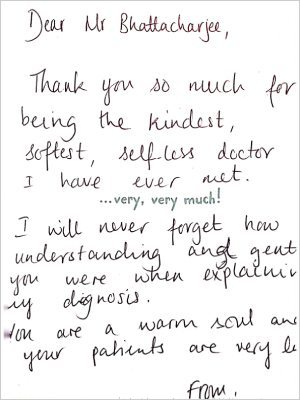 Dear Mr Bhattacharjee,
Thank you so much for
being the kindest,
softest, self-less doctor
I have ever met.
...very, very much!
I will never forget how
understanding and gent
you were when explainin
my diagnosis.
You are a warm soul and
your patients are very l
From,